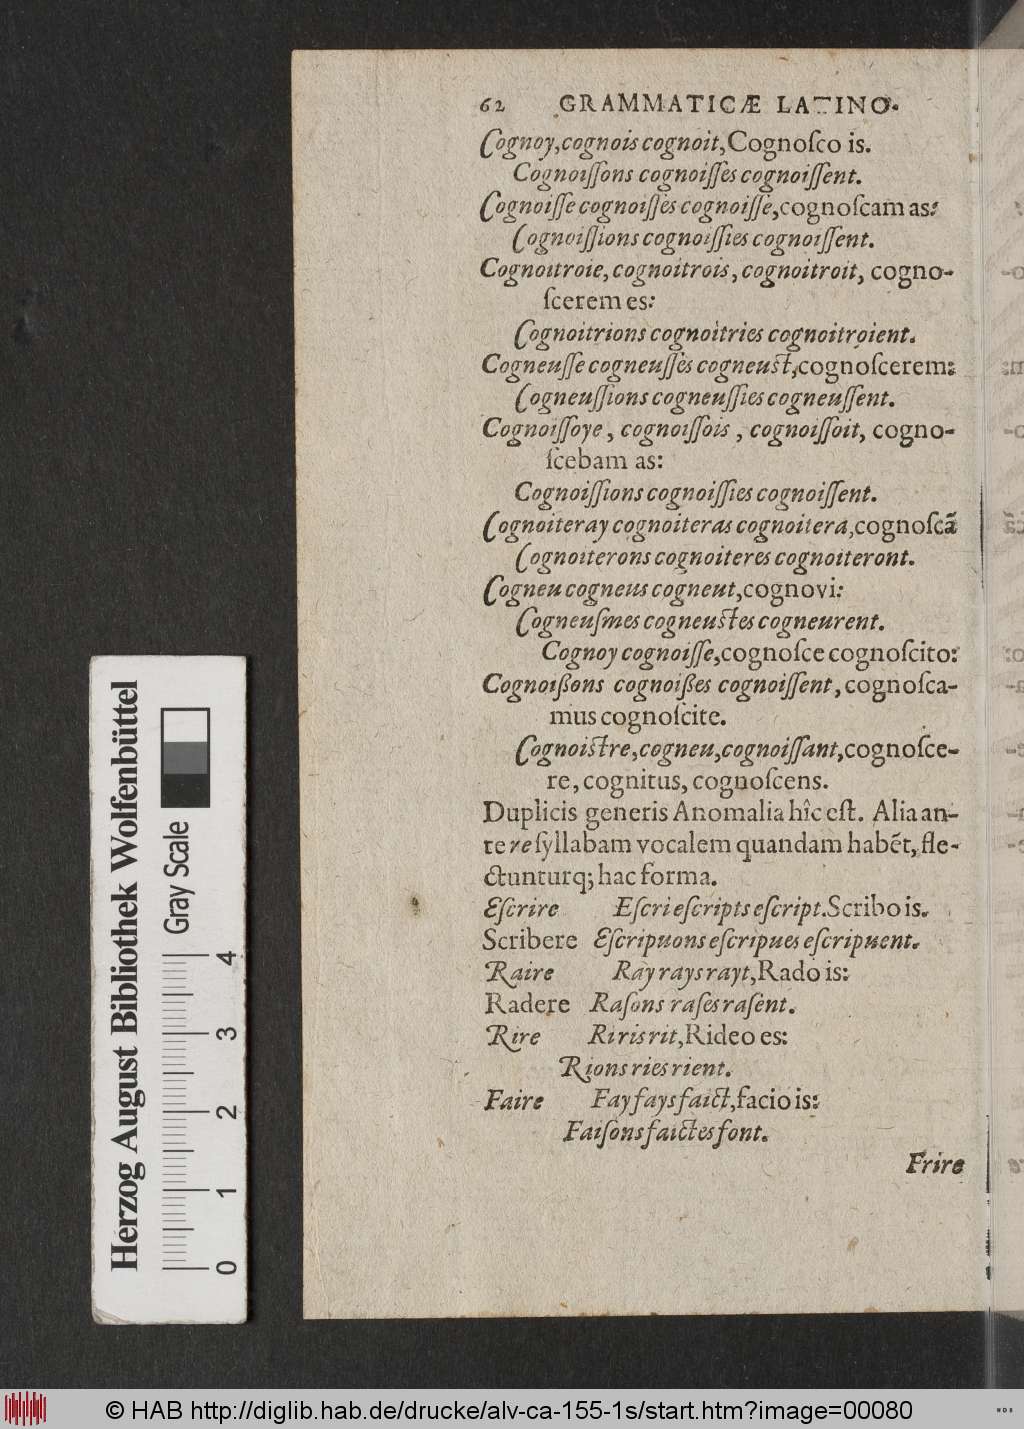 62 GRAMMATICÆ LATINO.
Cognoy,cognois cognoit,Cognoſco is.
Cognoiſſons cognoiſſes cognoiſſent.
Cognoiſſe cognoiſſes cognoiſſe,cognoſcam as:
Cognoiſſions cognoiſſies cognoiſſent.
Cognoitroie, cognoitrois, cognoitroit, cogno-
ſcerem es:
Cognoitrions cognoitries cognoitroient.
Cogneuſſe cogneuſſes cogneuſt,cognoſcerem:
Cogneuſſions cogneuſſies cogneuſſent.
Cognoiſſoye, cognoiſſois, cognoiſſoit, cogno-
ſcebam as:
Cognoiſſions cognoiſſies cognoiſſent.
Cognoiteray cognoiteras cognoitera,cognoſcã
Cognoiterons cognoiteres cognoiteront.
Cogneu cogneus cogneut,cognovi:
Cogneuſmes cogneuſtes cogneurent.
Cognoy cognoiſſe,cognoſce cognoſcito:
Cognoißons cognoißes cognoiſſent, cognoſca-
mus cognoſcite.
Cognoiſtre,cogneu,cognoiſſant,cognoſce-
re, cognitus, cognoſcens.
Duplicis generis Anomalia hîc eſt. Alia an-
te re ſyllabam vocalem quandam habẽt, fle-
ctunturq; hac forma.
Eſcrire Eſcri eſcripts eſcript.Scribo is.
Scribere Eſcripuons eſcripues eſcripuent.
Raire Ray rays rayt,Rado is:
Radere Raſons raſes raſent.
Rire Ri ris rit,Rideo es:
Rions ries rient.
Faire Fay fays faict,facio is:
Faiſons faictes font.
Frire
Herzog August Bibliothek Wolfenbüttel
Gray Scale
0 1 2 3 4
© HAB http://diglib.hab.de/drucke/alv-ca-155-1s/start.htm?image=00080